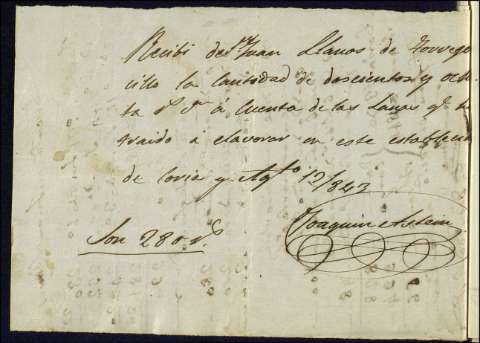 Recibi de Dn Juan Llanos de Torrejo
cillo la Cantidad de doscientos y oche
ta rs vn á Cuenta de las Lanas qe h
traido á elavorar en este estableci
de Coria y Agto 12/843
Joaquin
Son 280 rs.